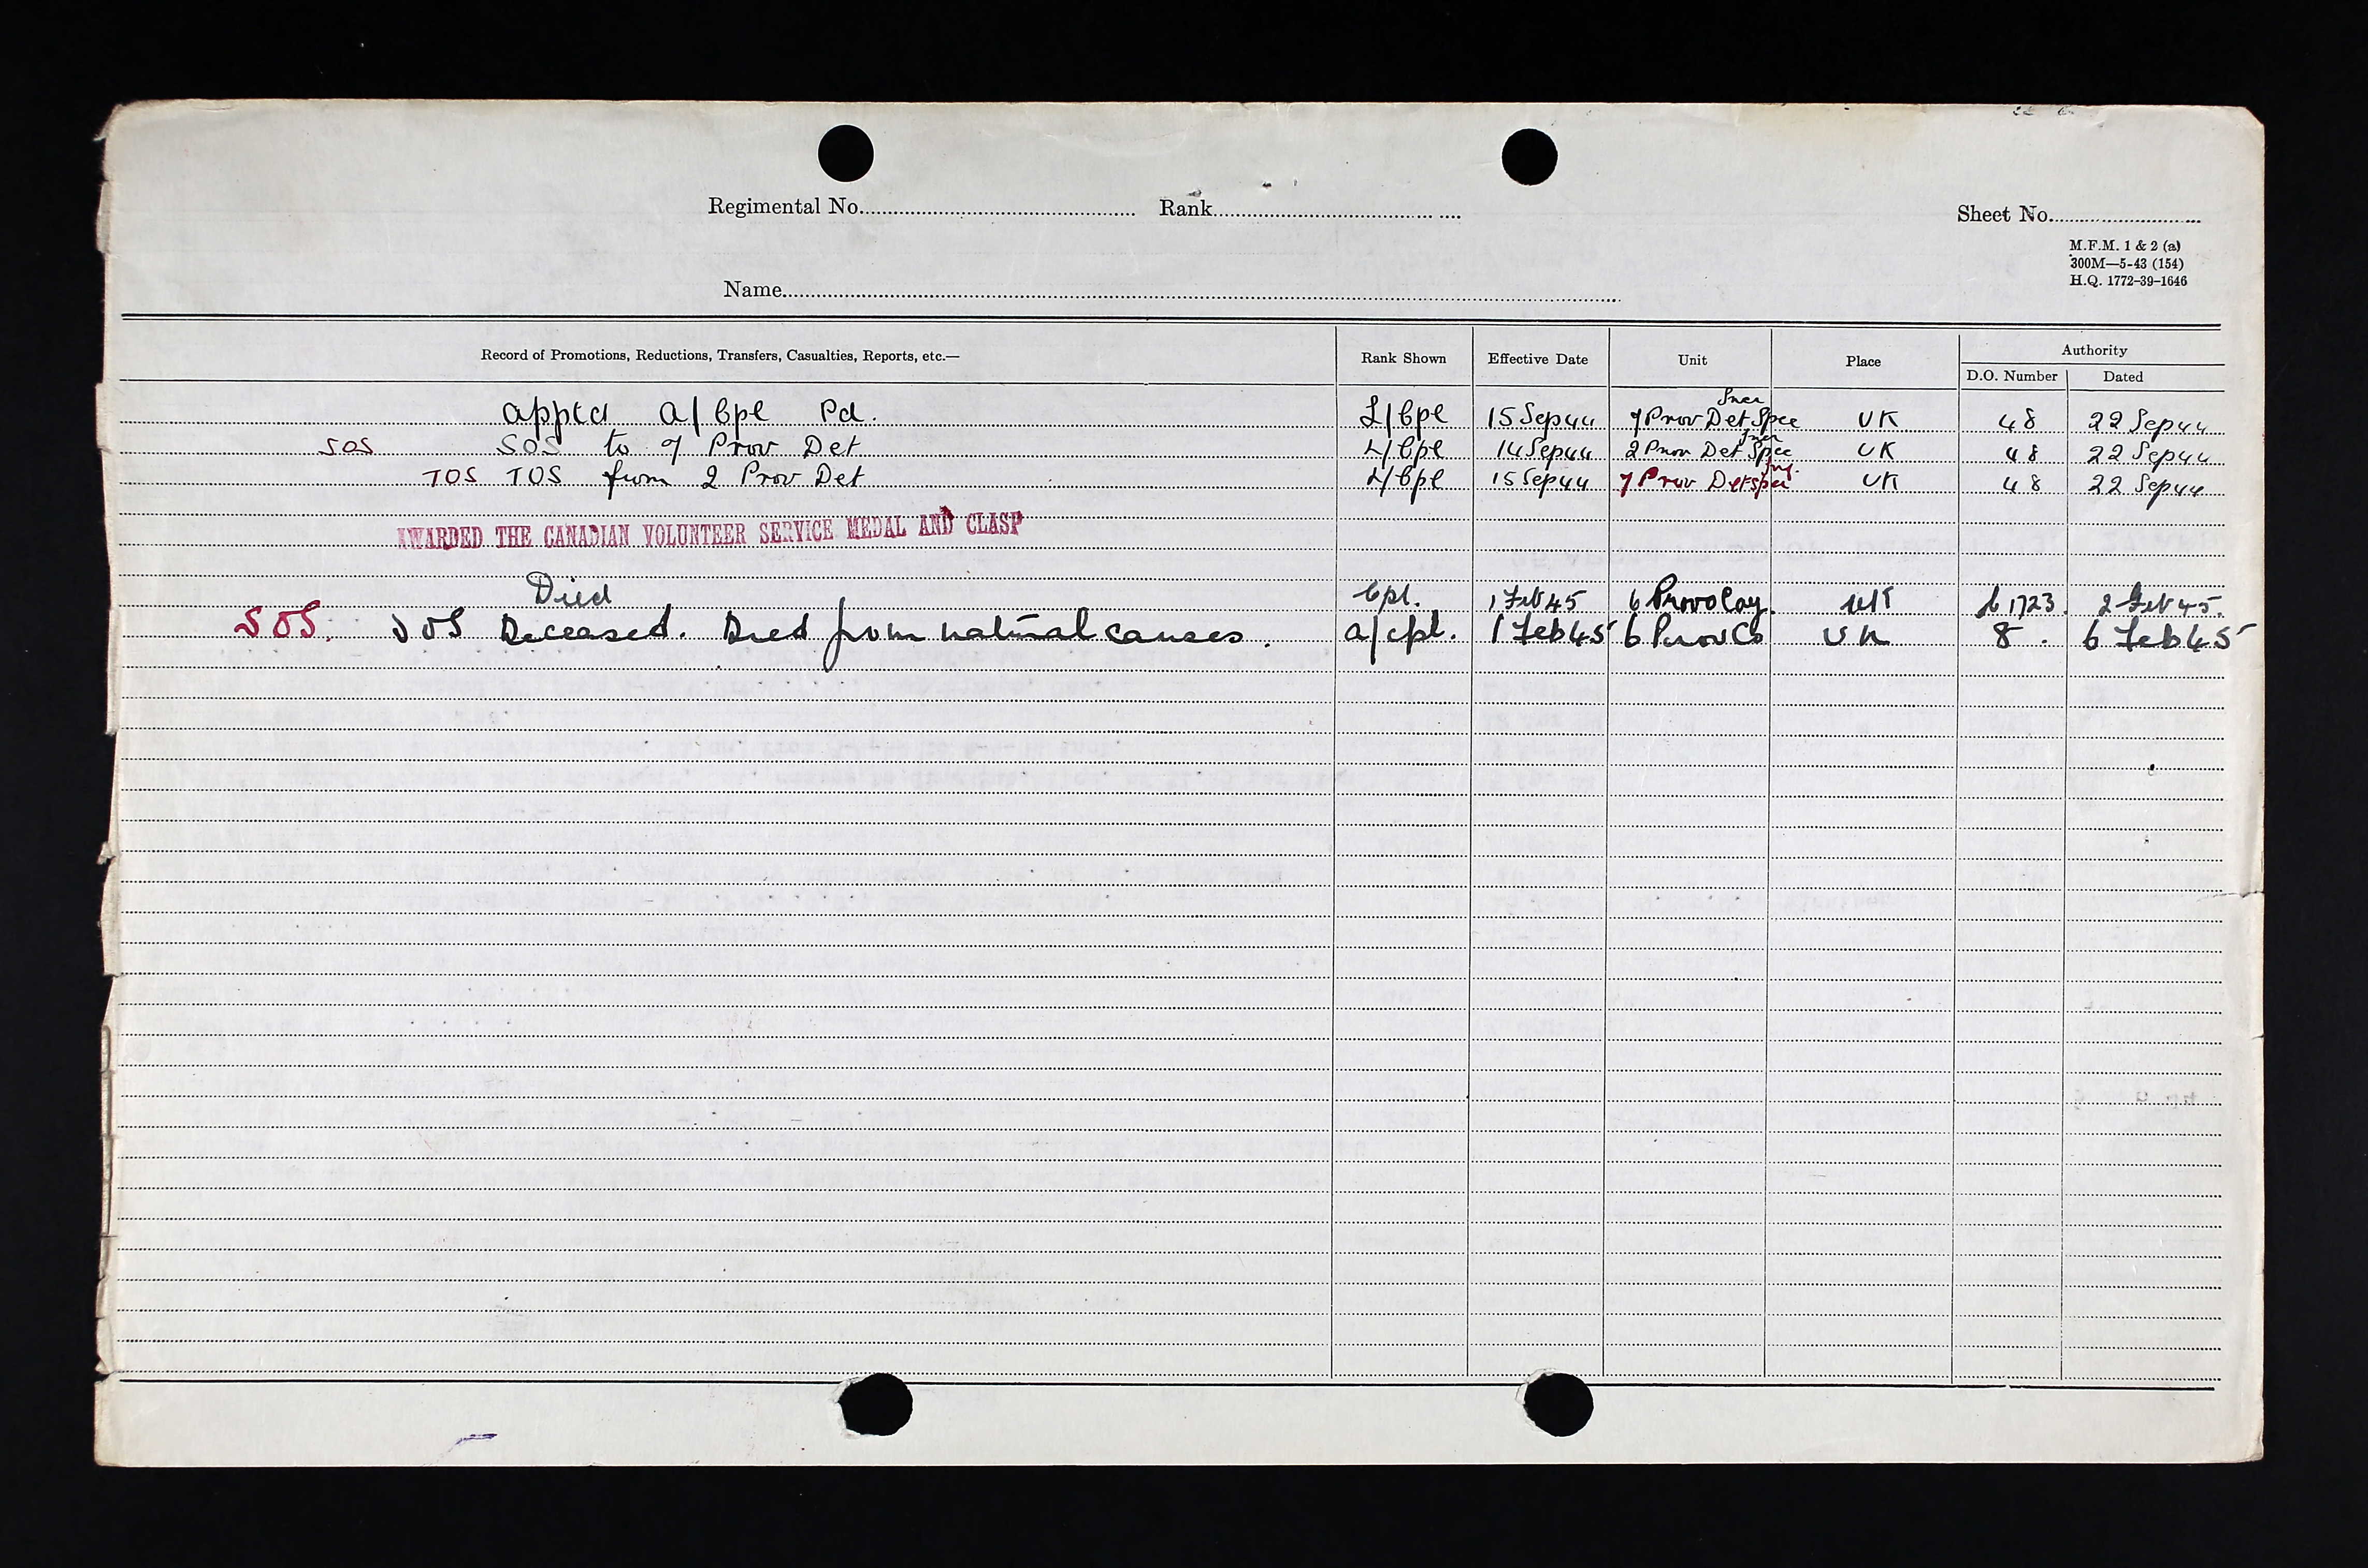 Regimental No. Rank Sheet No.
M.F.M. 1 & 2 (a)
300M—5-43 (154)
H.Q. 1772-39-1646
Name
Record of Promotions, Reductions, Transfers, Casualties, Reports, etc.— Rank Shown Effective Date Unit Place Authority
D.O. Number Dated
apptd a/Cpl Pd. L/Cpl 15 Sep 44 7 Prov Det Spec UK 48 22 Sep 44
SOS SOS to 7 Prov Det L/Cpl 14 Sep 44 2 Prov Det Spec UK 48 22 Sep 44
TOS TOS from 2 Prov Det L/Cpl 15 Sep 44 7 Prov Det Spec UK 48 22 Sep 44
AWARDED THE CANADIAN VOLUNTEER SERVICE MEDAL AND CLASP
Died Cpl. 1 Feb 45 6 Provo Coy. UK 1723 2 Feb 45.
SOS. SOS Deceased. Died from natural causes. a/cpl. 1 Feb 45 6 Prov Co UK 8. 6 Feb 45